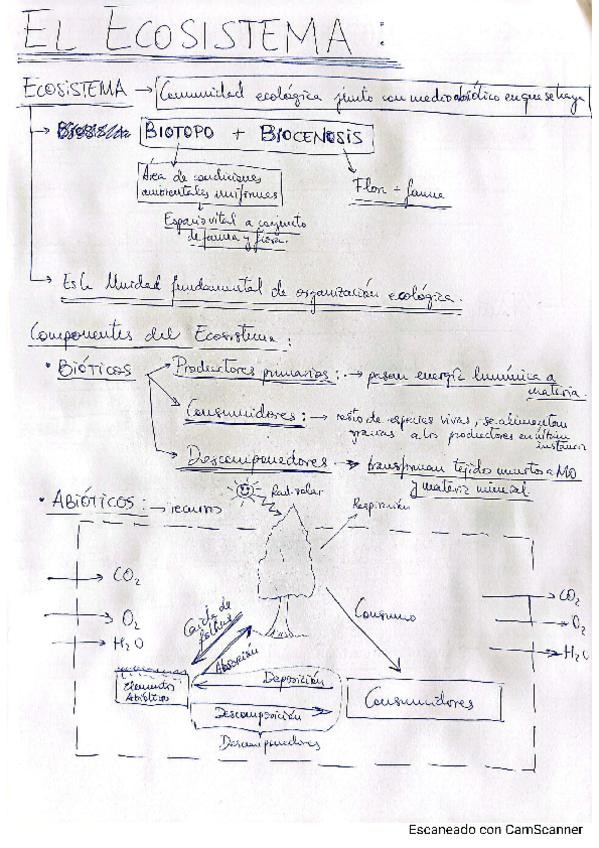 EL ECOSISTEMA:
ECOSISTEMA → Comunidad ecológica junto con medio abiótico en que se haya
→ BIOTOPO + BIOCENOSIS
Área de condiciones
ambientales uniformes
Flora + fauna
Espacio vital a conjunto
de fauna y flora.
→ Es la Unidad fundamental de organización ecológica.
Componentes del Ecosistema:
• BIÓTICOS
Productores primarios: → pasan energía lumínica a
materia.
Consumidores: → resto de especies vivas, se alimentan
gracias a los productores en última
instancia
Descomponedores → transforman tejido muertos a MO
y materia mineral
• ABIÓTICOS: → recursos
Rad. solar
Respiración
CO2
O2
H2O
CO2
O2
H2O
Caída de
Absorción
Consumo
Elementos
Abióticos
Deposición
Descomposición
Descomponedores
Consumidores
Escaneado con CamScanner